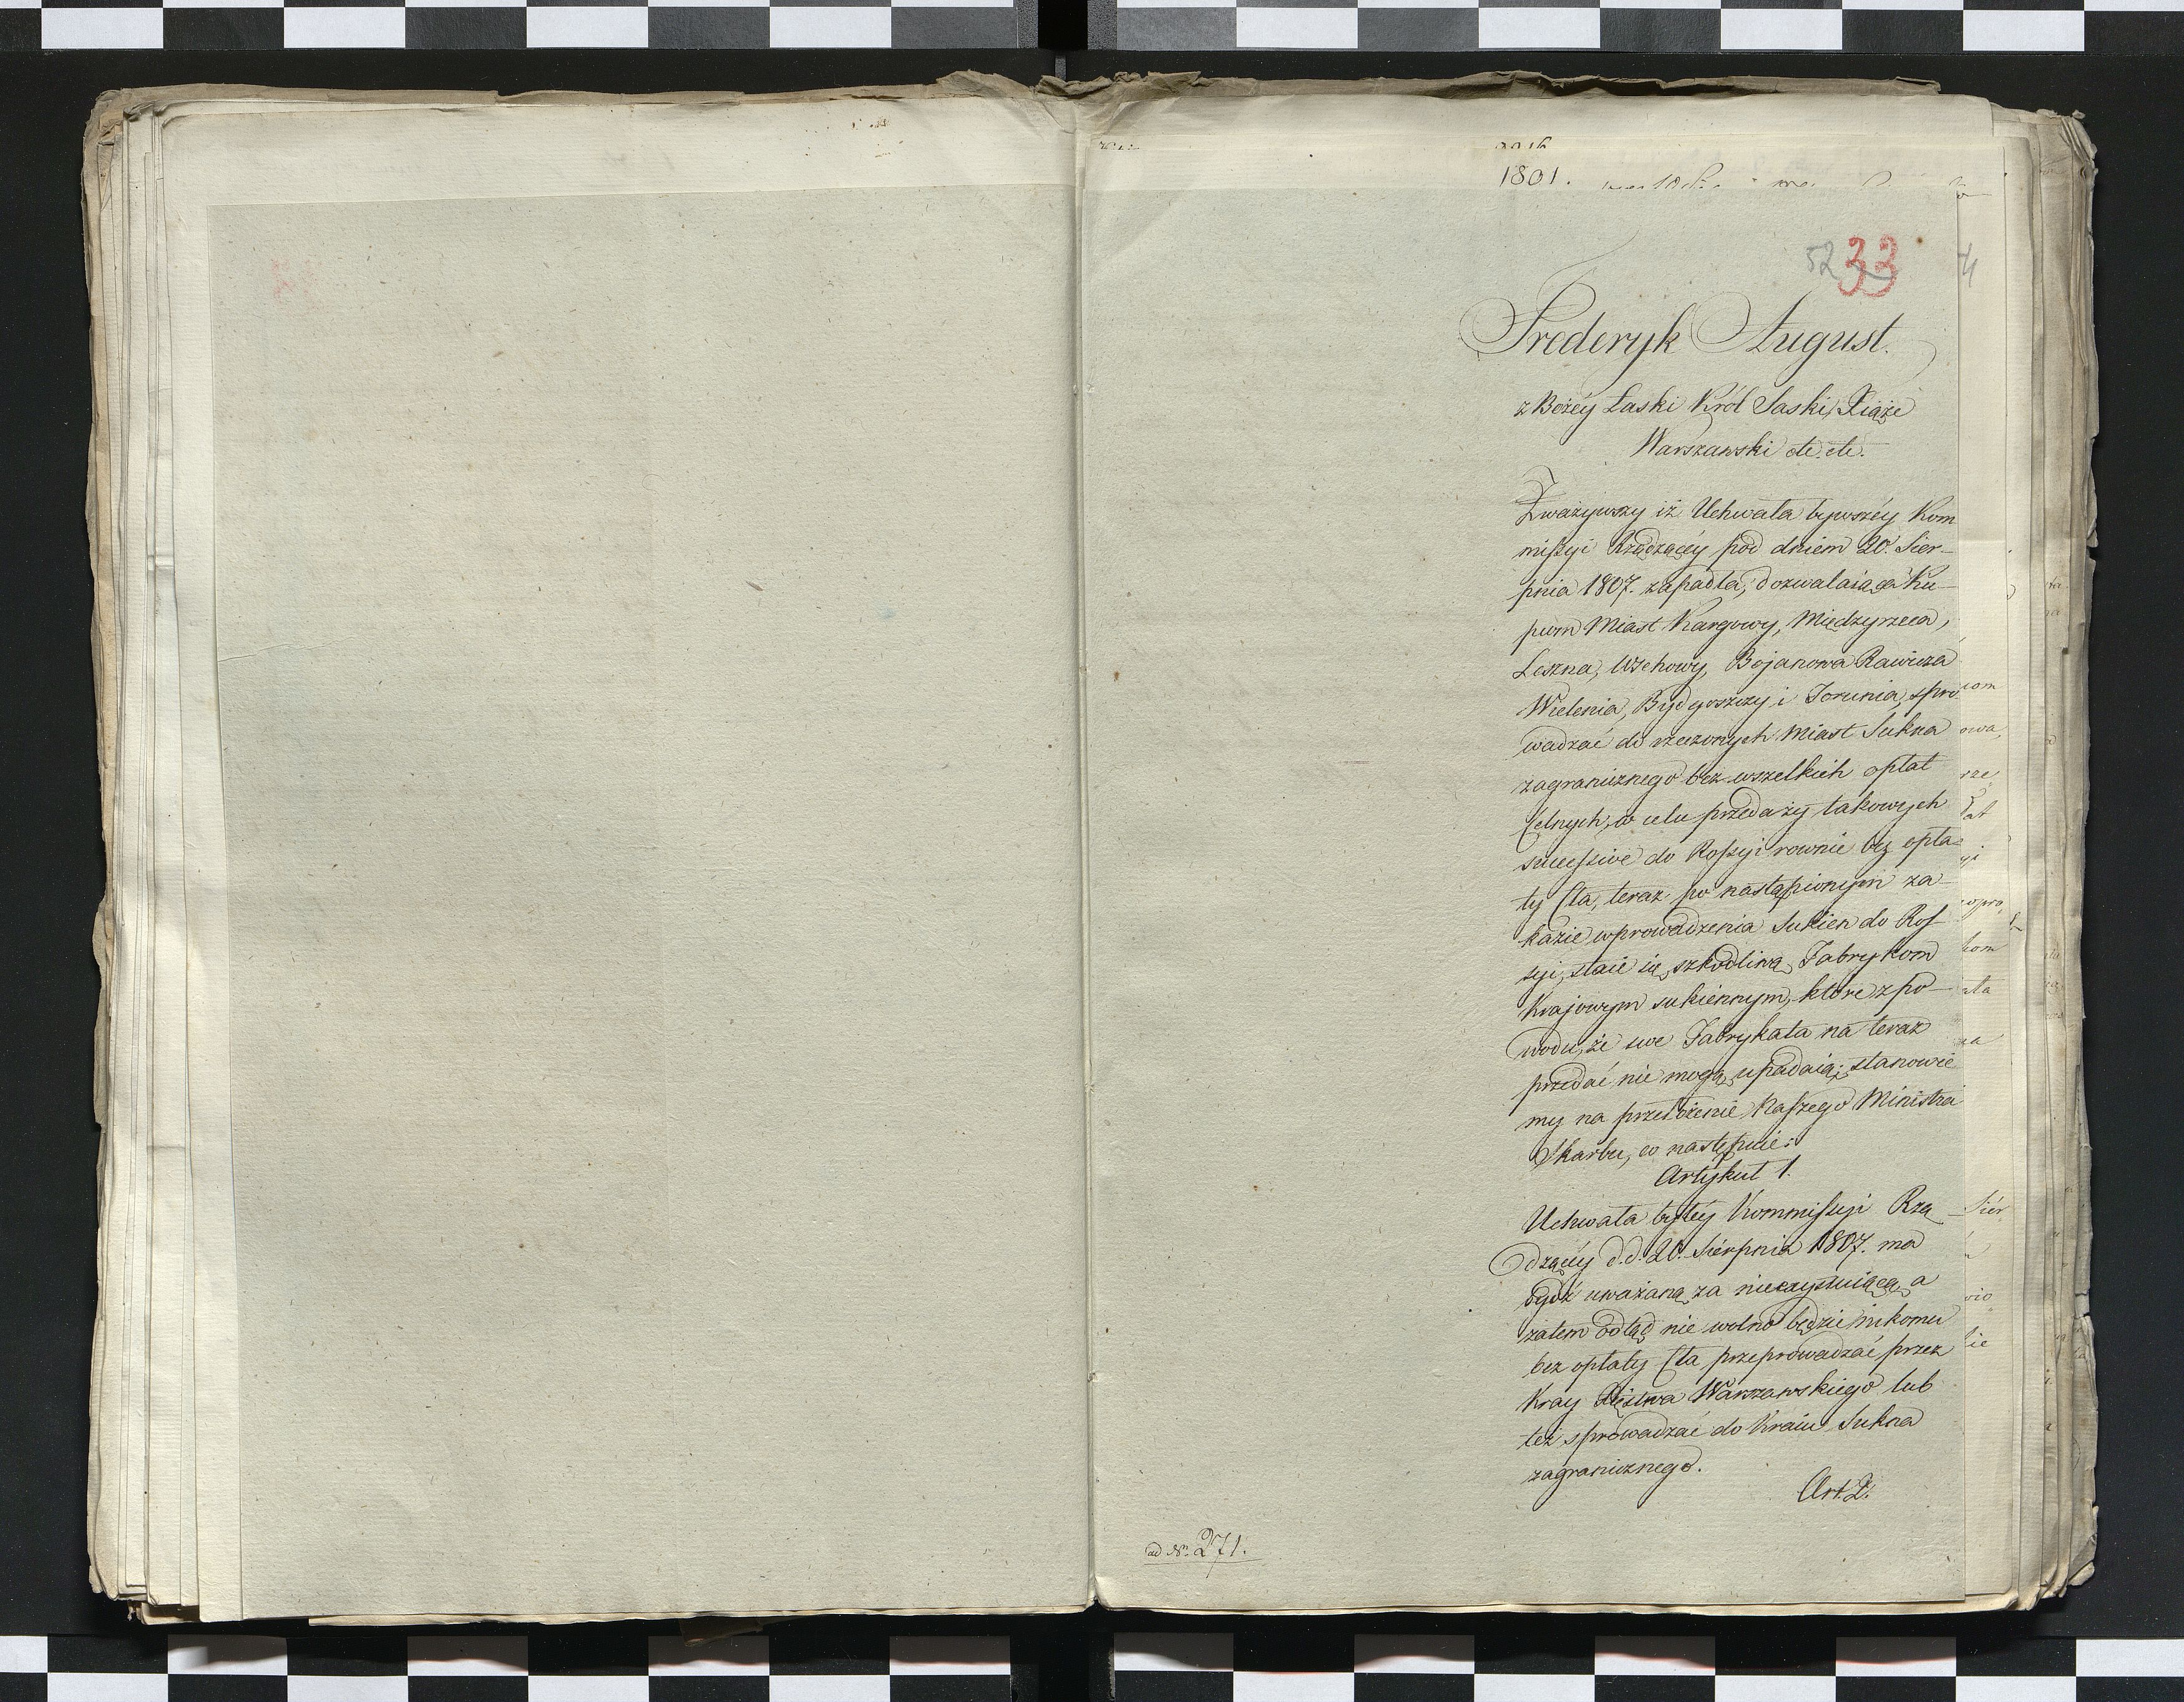 1801.
52 33
Frederyk August.
z Bożéy Łaski Król Saski, Xiąże
Warszawski etc. etc.
Zważywszy iż Uchwała bywszéy Kom
mißyi Rządzącéy pod dniem 20. Sier-
pnia 1807. zapadła, dozwalaiąca Ku-
pcom Miast Kargowy, Międzyrzeca,
Leszna, Wschowy, Bojanowa Rawicza
Wielenia, Bydgoszczy i Torunia, spro-
wadzać do rzeczonych Miast Sukna
zagranicznego bez wszelkich opłat
Celnych, w celu przedaży takowych
successive do Roßyi rownie bez opła-
ty Cła, teraz po nastąpionym za-
kazie wprowadzenia Sukien do Roß-
syi, staie się szkodliwą Fabrykom
Krajowym sukiennym, które z po-
wodu, że swe Fabrykata na teraz
przedać nie mogą, upadaią; stanowie
my na przełożenie Naszego Ministra
Skarbu, co następuie:
Artykuł 1.
Uchwała byłéy Kommißyi Rzą-
dzącéy d.d. 20. Sierpnia 1807. ma
bydź uważaną za nieexystuiącą, a
zatem odtąd nie wolno będzie nikomu
bez opłaty Cła przeprowadzać przez
Kray Xięstwa Warszawskiego lub
też sprowadzać do Kraiu Sukna
zagranicznego.
Art. 2.
ad Nr. 271.